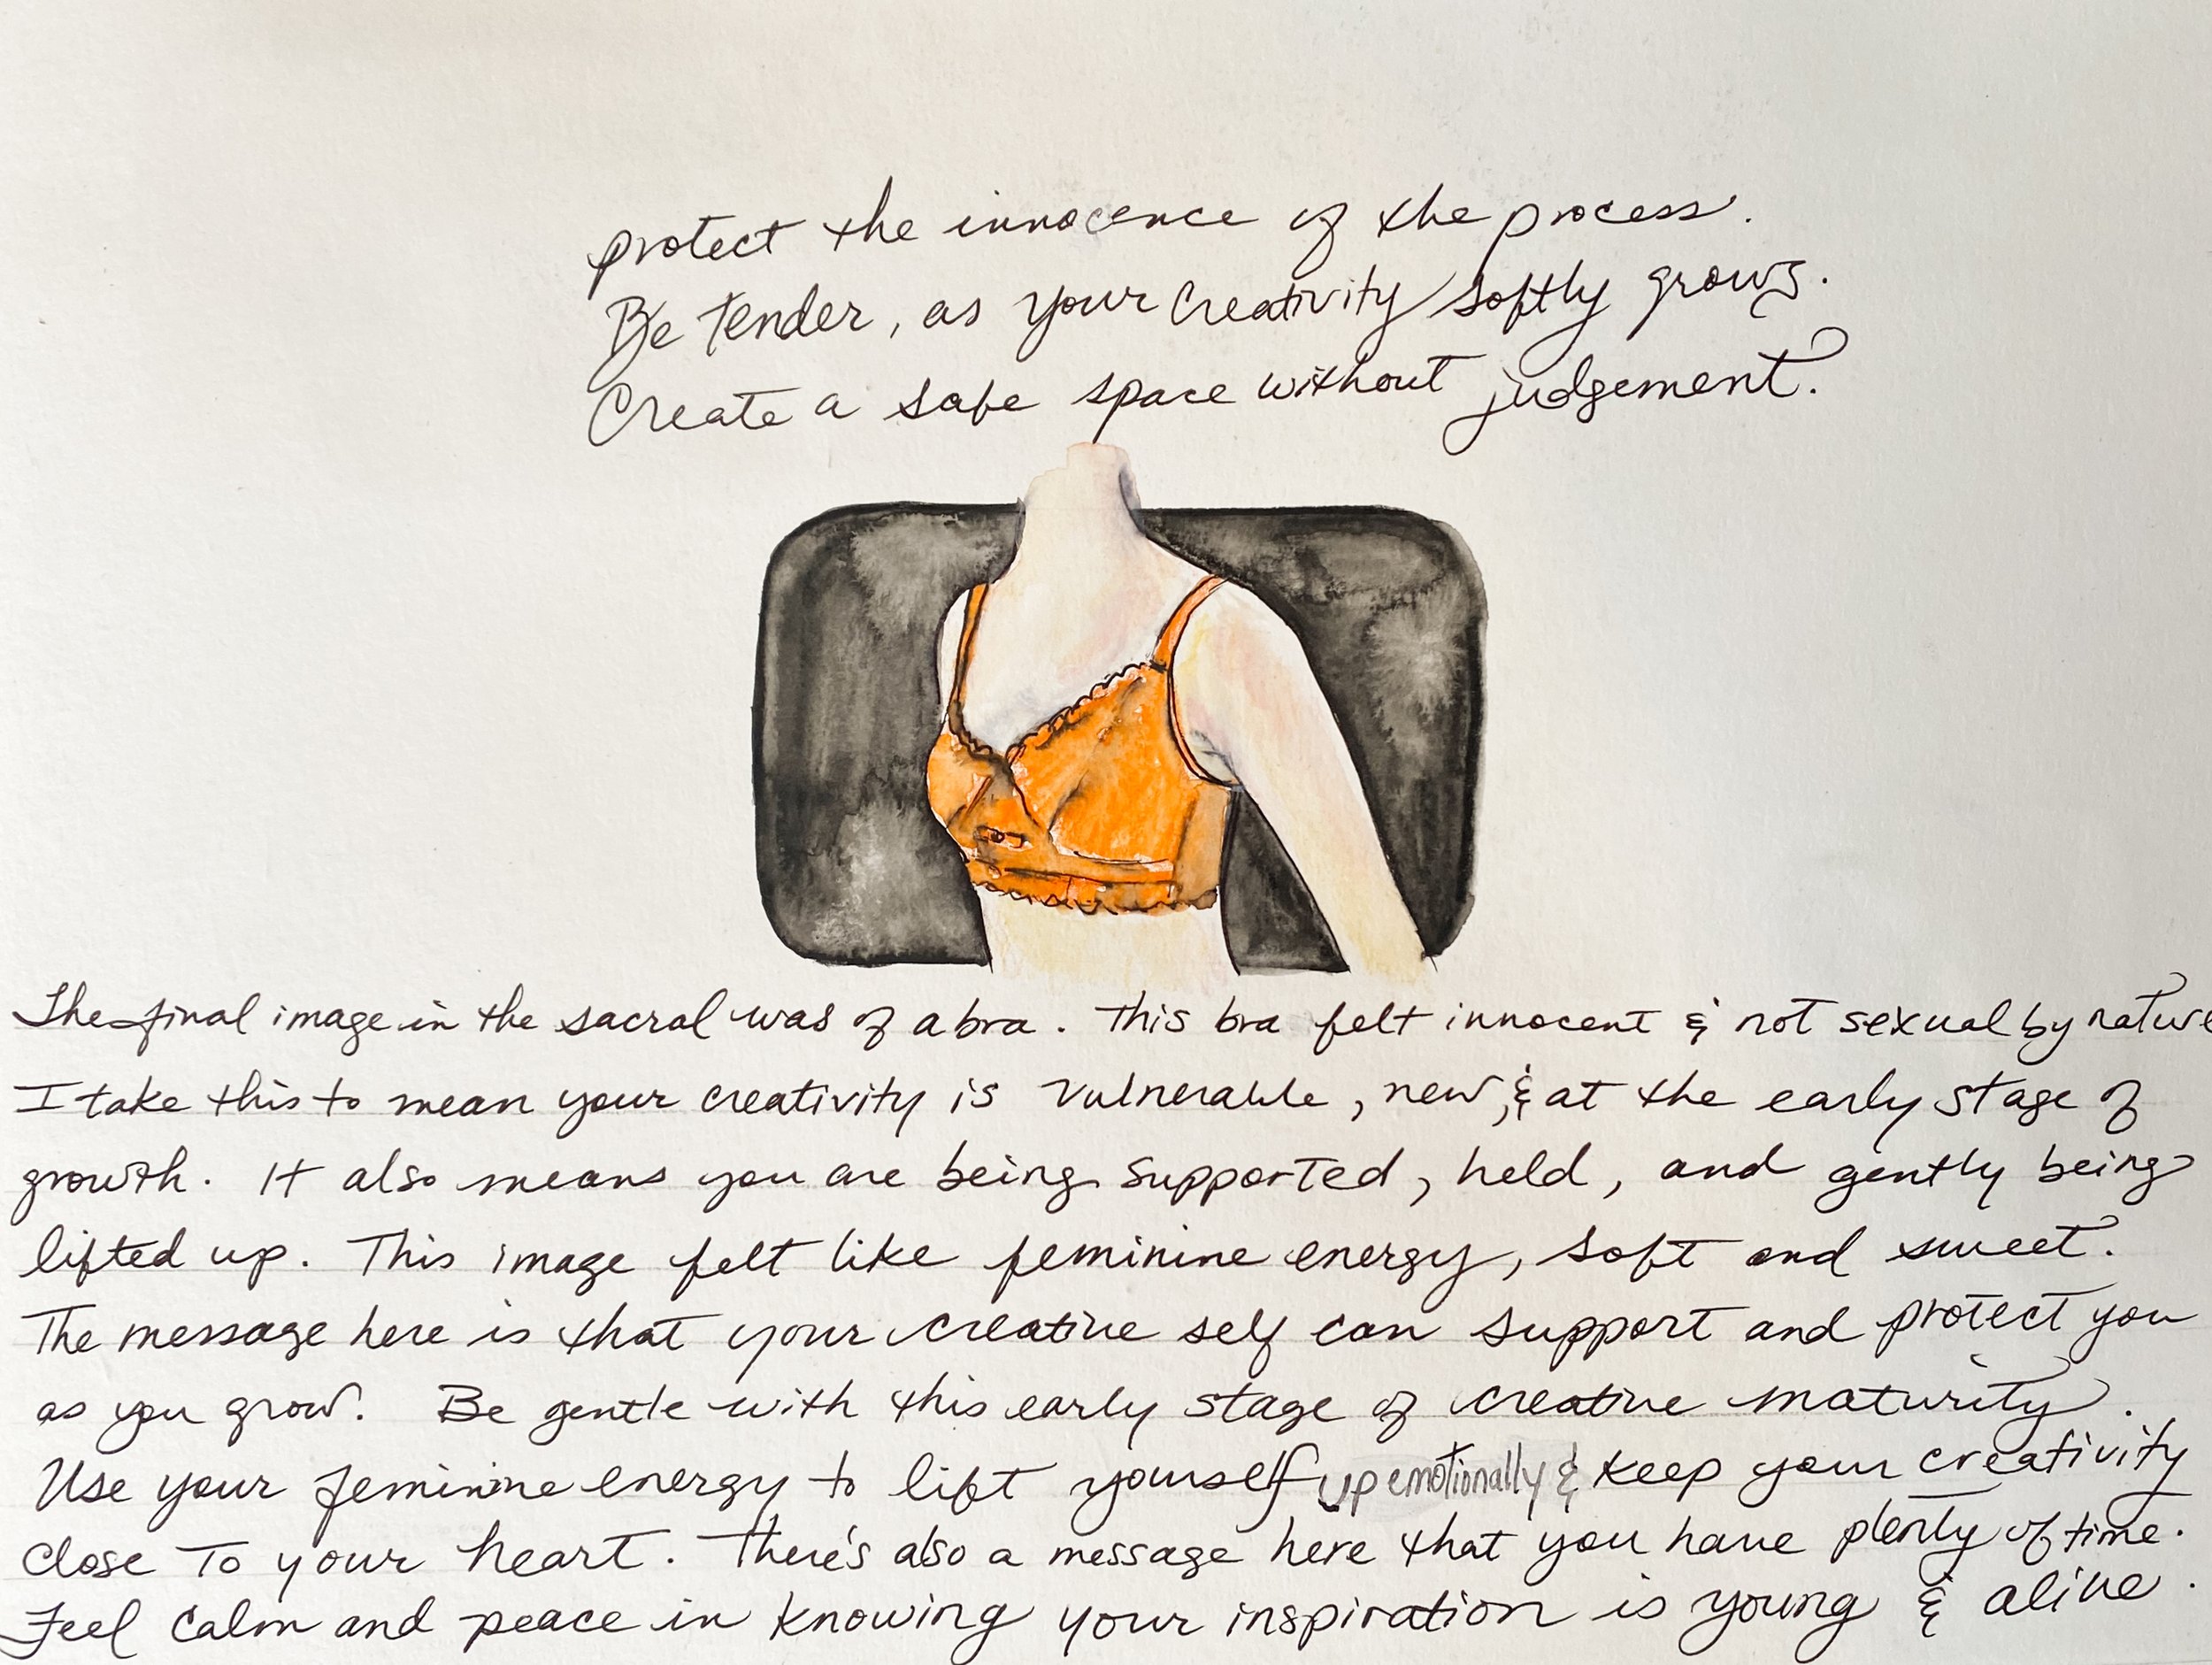 protect the innocence of the process.
Be tender, as your creativity softly grows.
Create a safe space without judgement.
The final image in the sacral was of a bra. This bra felt innocent & not sexual by nature
I take this to mean your creativity is vulnerable, new, & at the early stage of
growth. It also means you are being supported, held, and gently being
lifted up. This image felt like feminine energy, soft and sweet.
The message here is that your creative self can support and protect you
as you grow. Be gentle with this early stage of creative maturity.
Use your feminine energy to lift yourself up emotionally & keep your creativity
close to your heart. There's also a message here that you have plenty of time.
Feel calm and peace in knowing your inspiration is young & alive.